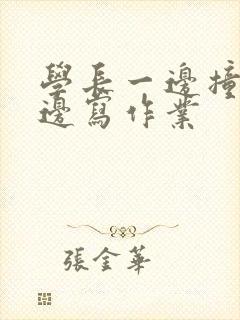 學長一邊撞
邊寫作業
張金華